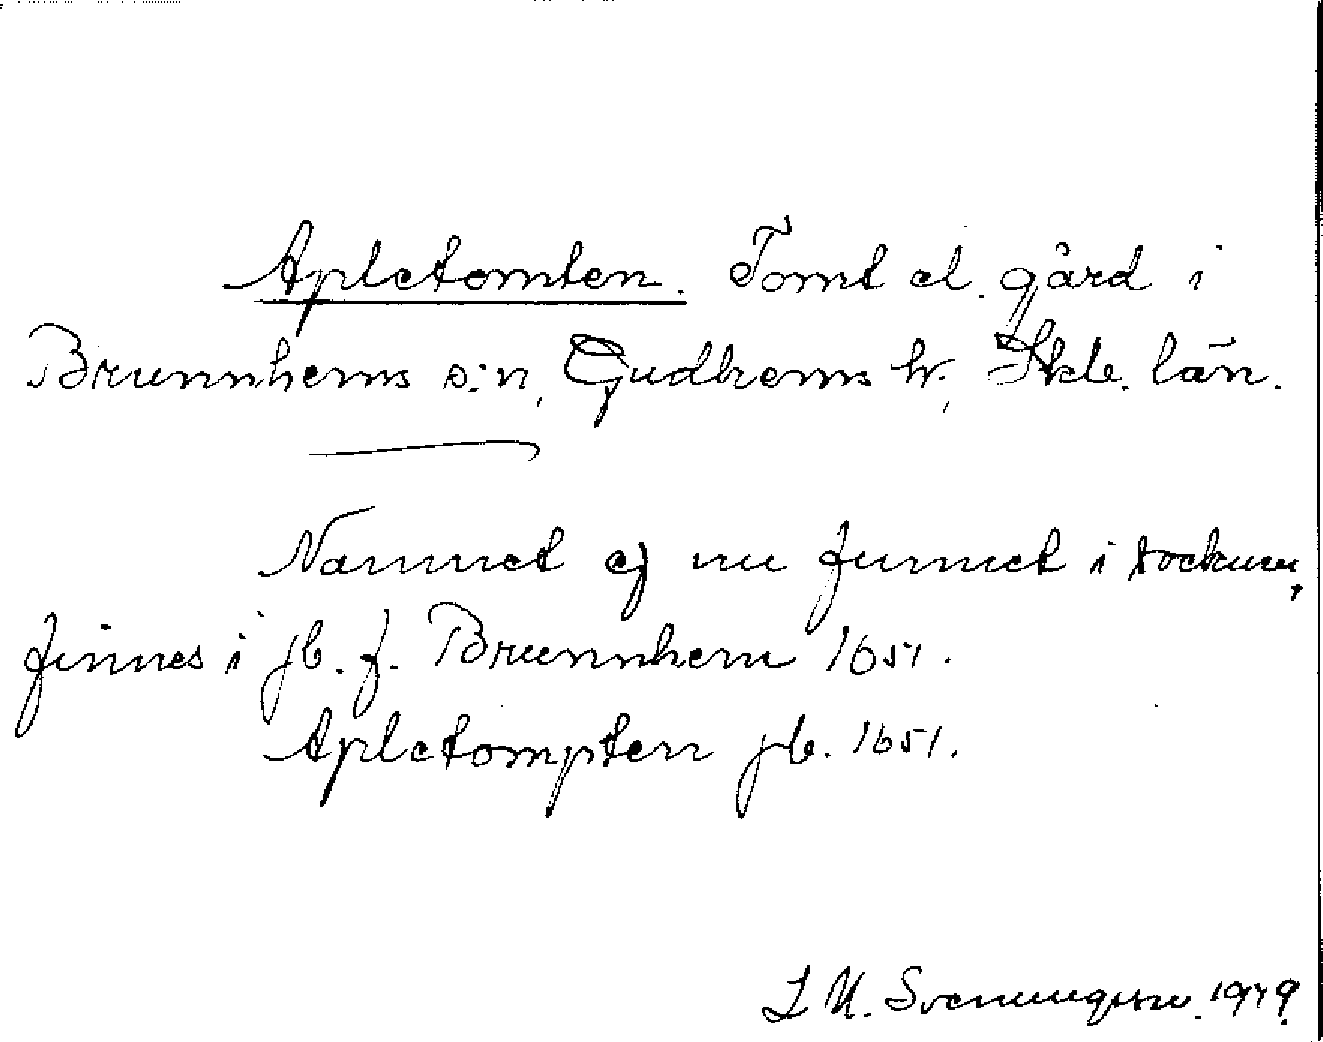 Apletomten. Tomt el. gård i
Brunnhems s:n, Gudhems hr., Skb. län.
Namnet ej nu funnet i socknen,
finnes i jb. f. Brunnhem 1651.
Apletompten jb. 1651.
Svenungsson. 1949.